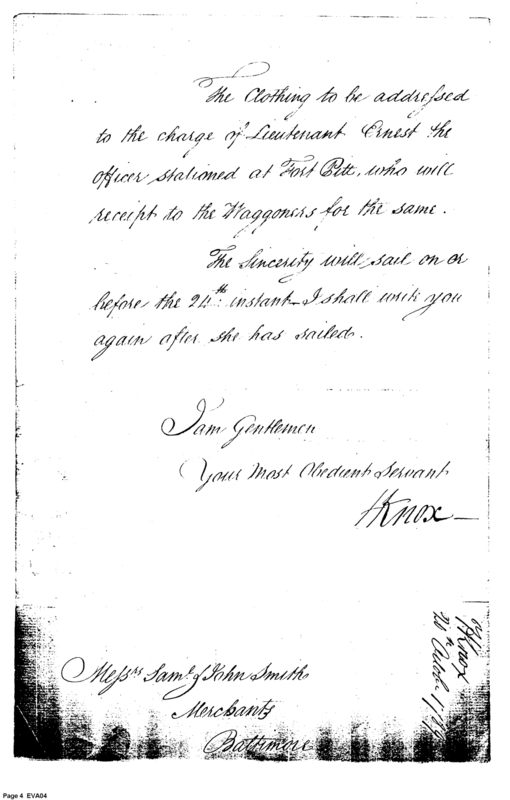 The Clothing to be addressed
to the charge of Lieutenant Ernest the
officer stationed at Fort Pitt, who will
receipt to the Waggoners for the same.
The Sincerity will sail on or
before the 24th instant - I shall write you
again after she has sailed.
I am Gentlemen
Your Most Obedient Servant
HKnox
Messrs Saml & John Smith
Merchants
Baltimore
HKnox
20
Page 4 EVA04